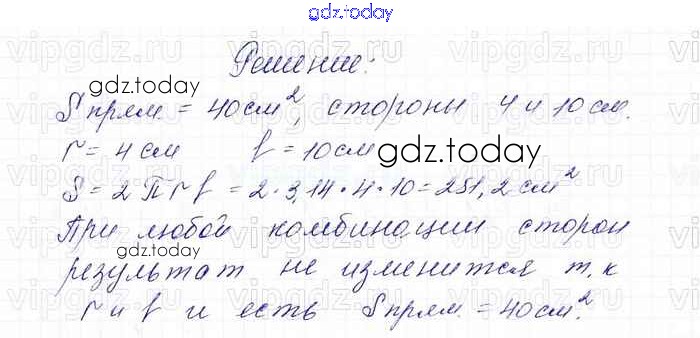 gdz.today
Решение:
gdz.today
S прям. = 40 см², стороны 4 и 10 см.
r = 4 см f = 10 см
gdz.today
S = 2 П r f = 2 · 3,14 · 4 · 10 = 251,2 см²
При любой комбинации сторон
gdz.today
результат не изменится т.к
r и f и есть S прям. = 40 см².